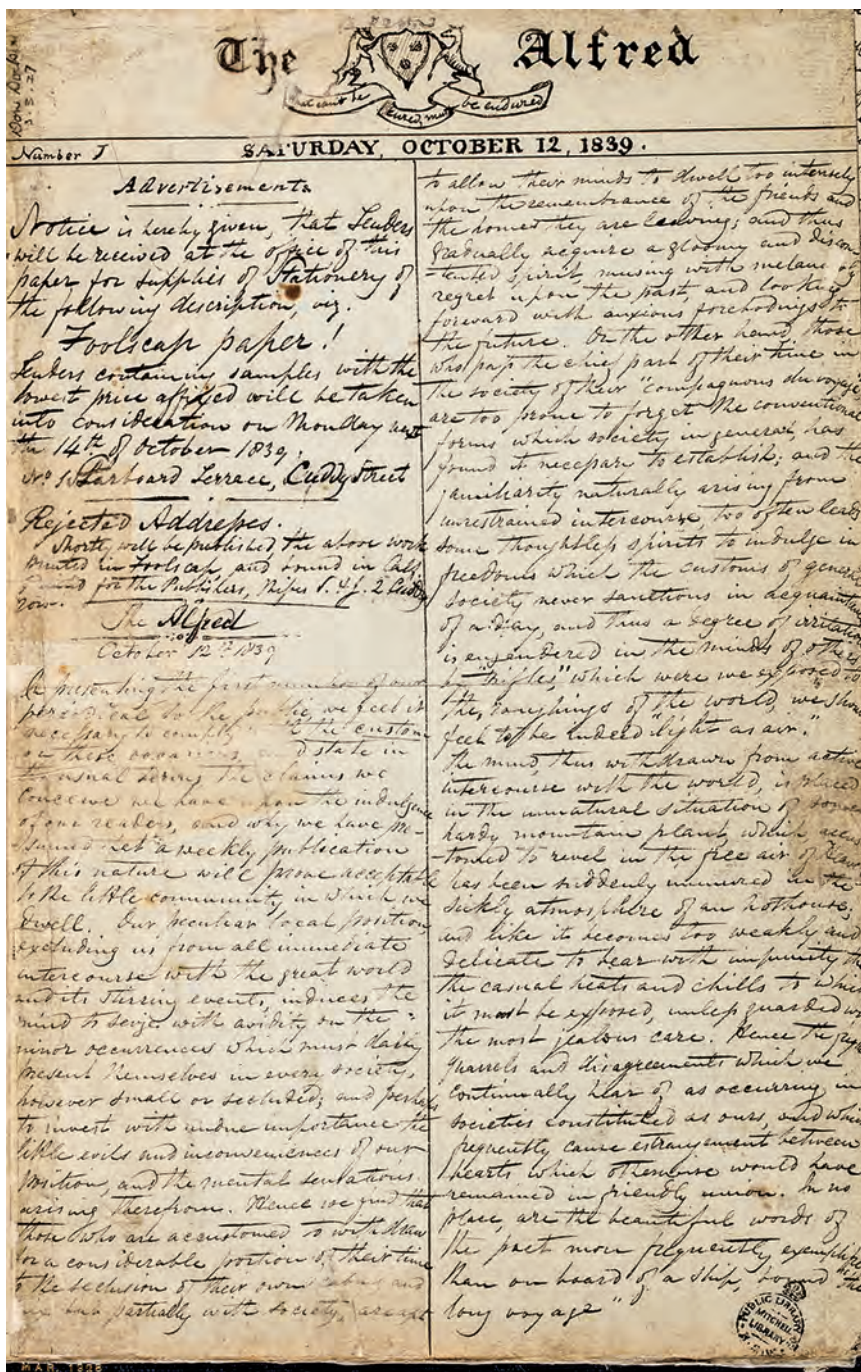 The Alfred
What can't be cured, must be endured
Number I
SATURDAY, OCTOBER 12, 1839.
Advertisements
Notice is hereby given, that Tenders
will be received at the office of this
paper for supplies of Stationery of
the following description, viz.
Foolscap paper!
Tenders containing samples with the
lowest price affixed will be taken
into consideration on Monday next
the 14th of October 1839.
Starboard Terrace, Cuddy Street
Rejected Addresses.
Shortly will be published, the above work
printed in Foolscap, and bound in Calf
for the Publishers,
row.
The Alfred
October 12th 1839
In presenting the first number of our
periodical to the public, we feel it
necessary to comply with the custom
on these occasions, and state in
the usual terms the claims we
conceive we have upon the indulgence
of our readers, and why we have pre-
sumed that a weekly publication
of this nature will prove acceptable
to the little community in which we
dwell. Our peculiar local position,
excluding us from all immediate
intercourse with the great world
and its stirring events, induces the
mind to seize with avidity on the
minor occurrences which must daily
present themselves in every society,
however small or secluded; and perhaps
to invest with undue importance the
little evils and inconveniences of our
position, and the mental sensations
arising therefrom. Hence we find that
those who are accustomed to withdraw
for a considerable portion of their time
to the seclusion of their own cabins and
mix but partially with society, are apt
to allow their minds to dwell too intensely
upon the remembrance of the friends and
the homes they are leaving; and thus
gradually acquire a gloomy and discon-
tented spirit, musing with melancholy
regret upon the past, and looking
forward with anxious forebodings to
the future. On the other hand, those
who pass the chief part of their time in
the society of their "compagnons du voyage"
are too prone to forget the conventional
forms which society in general, has
found it necessare to establish; and the
familiarity naturally arising from
unrestrained intercourse, too often leads
some thoughtless spirits to indulge in
freedoms which the customs of general
society never sanctions in acquaintance
of a day, and thus a degree of irritation
is engendered in the minds of others
by "trifles," which were we exposed to
the roughings of the world, we should
feel to be indeed "light as air."
The mind, thus withdrawn from active
intercourse with the world, is placed
in the unnatural situation of some
hardy mountain plant, which accus
-tomed to revel in the free air of Heaven
has been suddenly immured in the
sickly atmosphere of an hothouse;
and like it becomes too weakly and
delicate to bear with impunity the
the casual heats and chills to which
it must be exposed, unless guarded with
the most jealous care. Hence the
quarrels and disagreements which we
continually hear of as occurring in
societies constituted as ours, and which
frequently cause estrangement between
hearts which otherwise would have
remained in friendly union. In no
place, are the beautiful words of
the poet more frequently exemplified
than on board of a ship, bound "the
long voyage"
PUBLIC LIBRARY
MITCHELL
LIBRARY
MAR. 1928